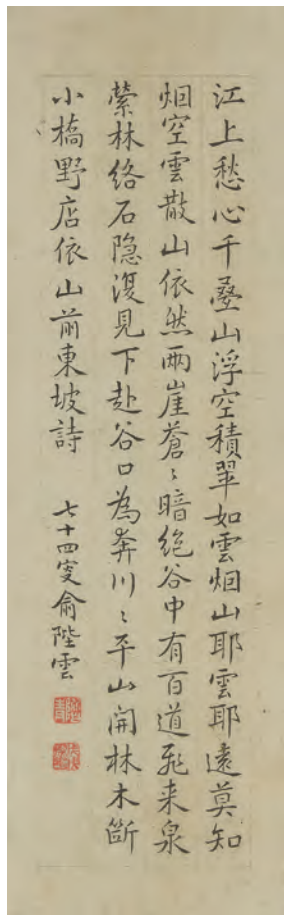 江上愁心千疊山浮空積翠如雲烟山耶雲耶遠莫知
烟空雲散山依然兩崖蒼〻暗絕谷中有百道飛来泉
縈林络石隐復見下赴谷口為奔川〻平山開林木斷
小橋野店依山前東坡詩
七十四叟俞陛雲